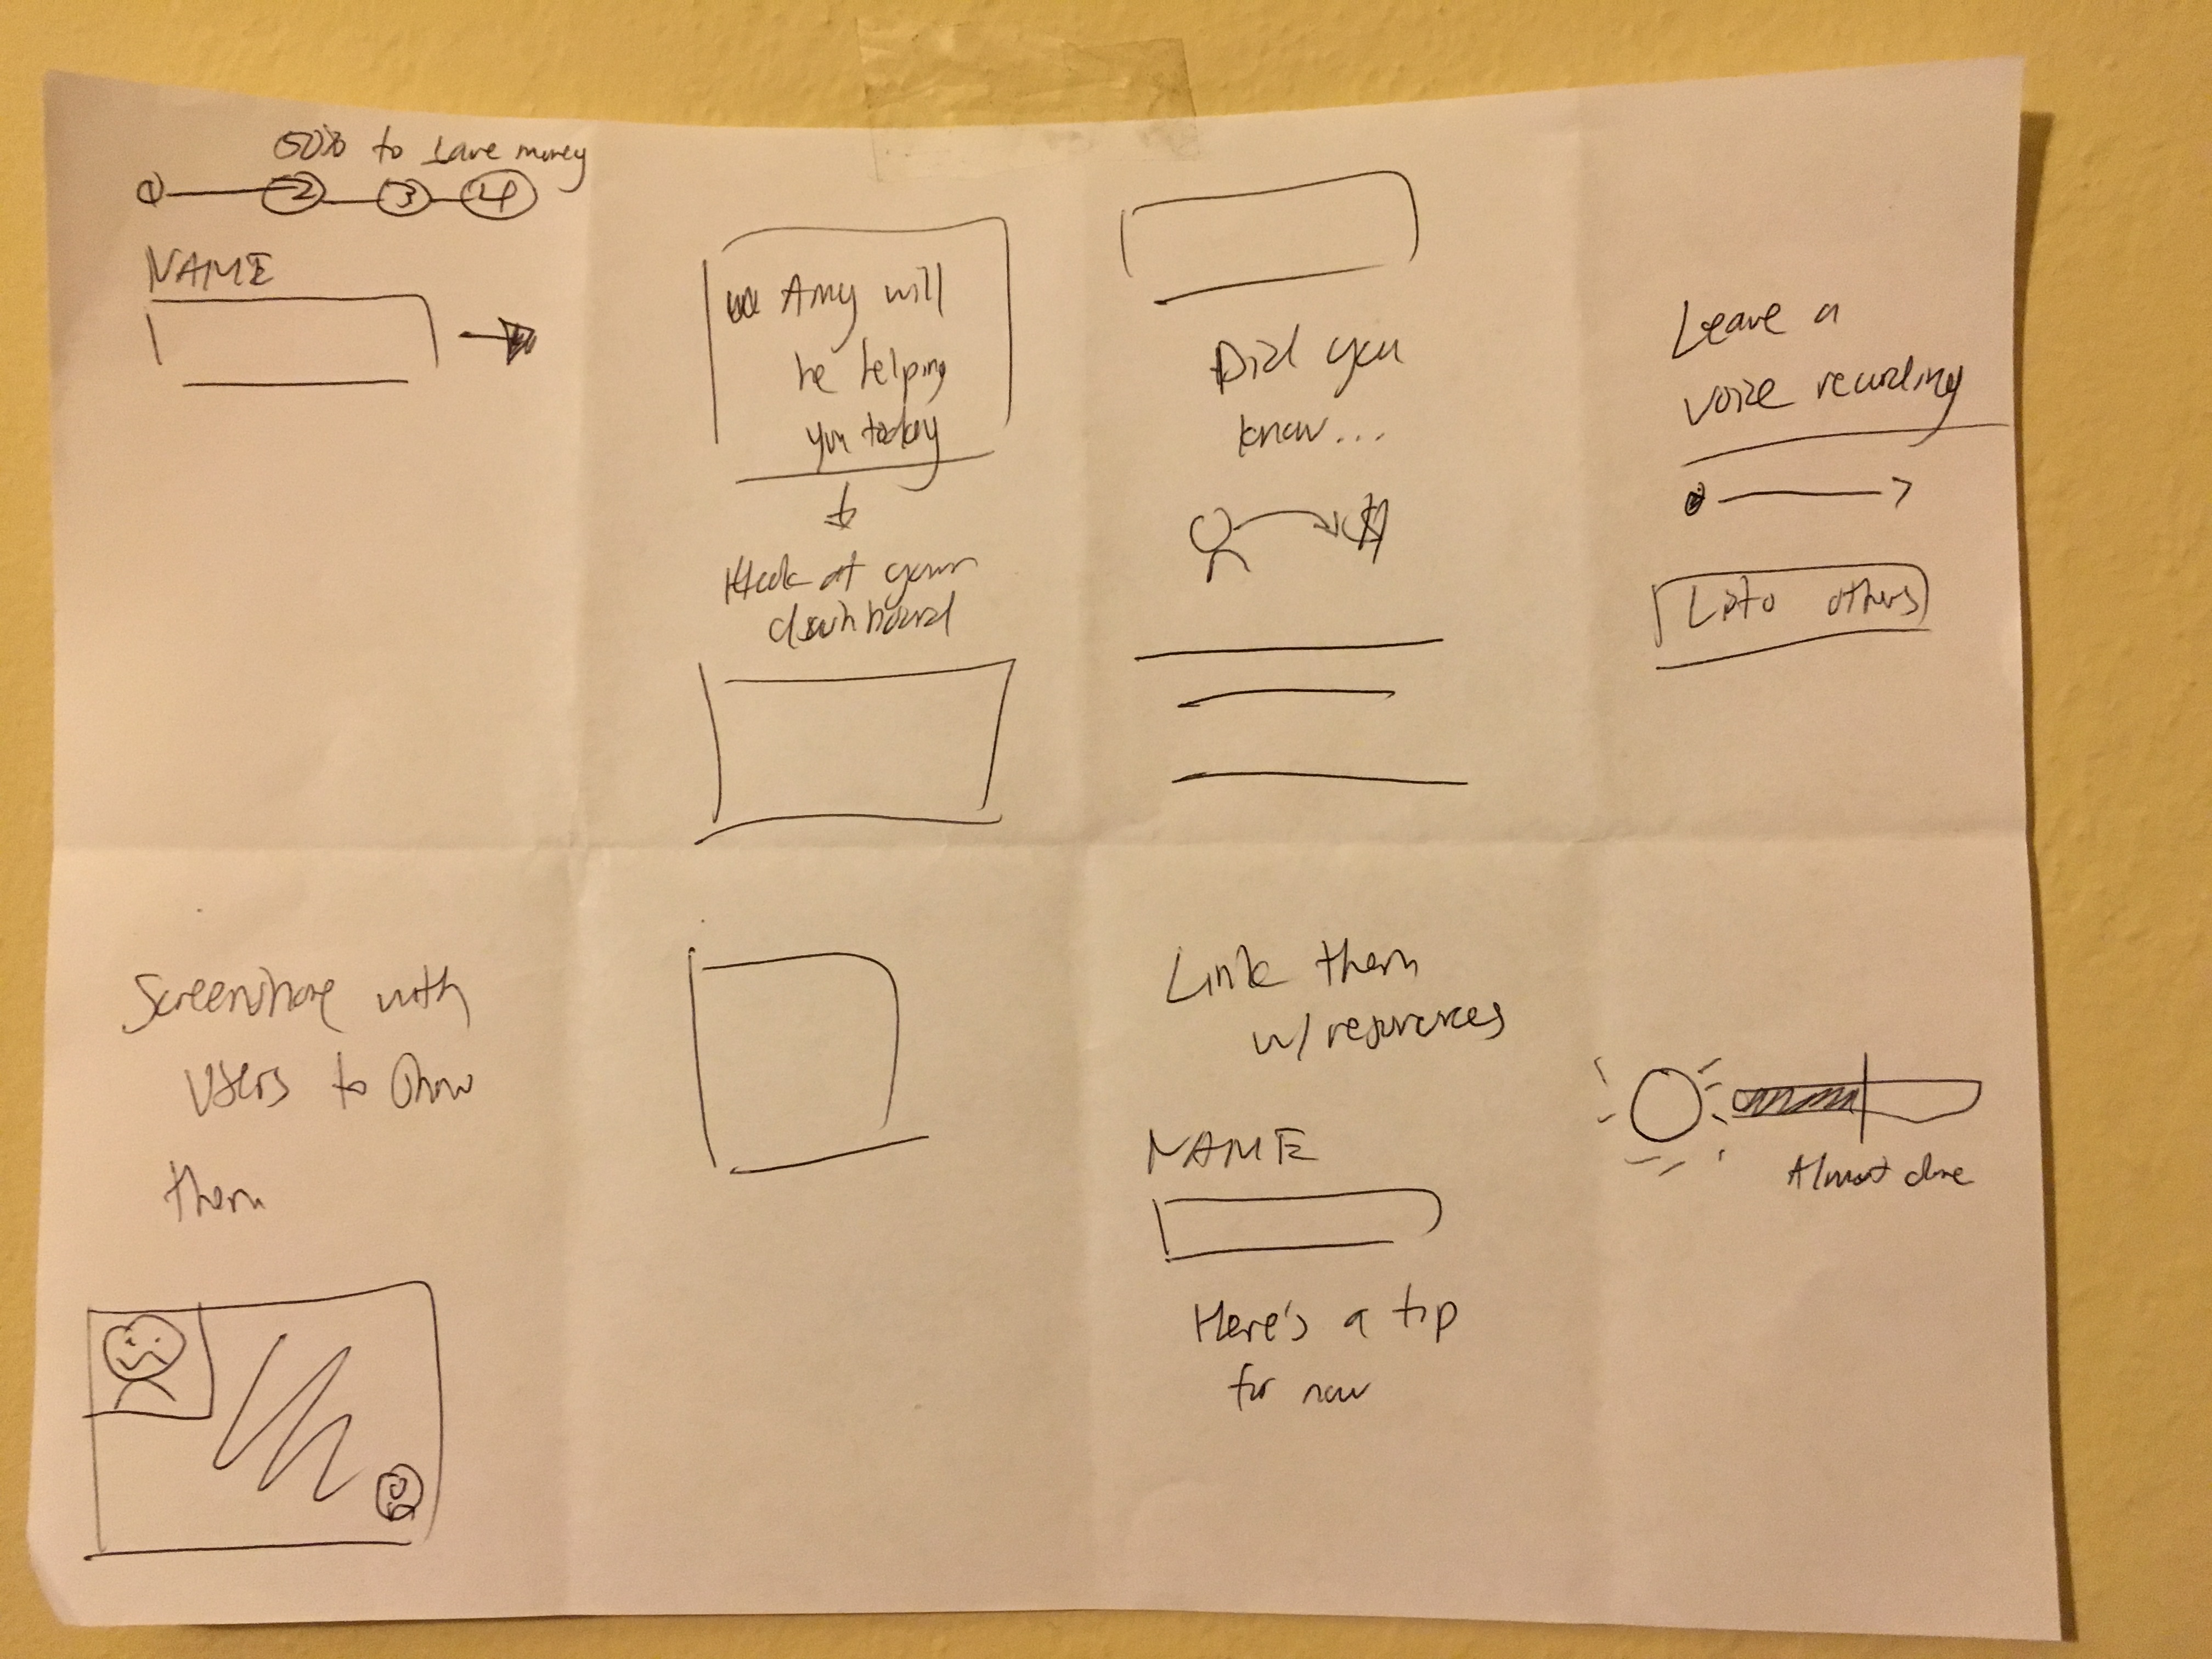 50% to save money
1 2 3 4
NAME
Amy will
be helping
you today
at your
dashboard
Did you
know...
$
Leave a
voice recording
others
Screenshare with
users to show
them
Link them
w/ resources
NAME
Here's a tip
for now
Almost done